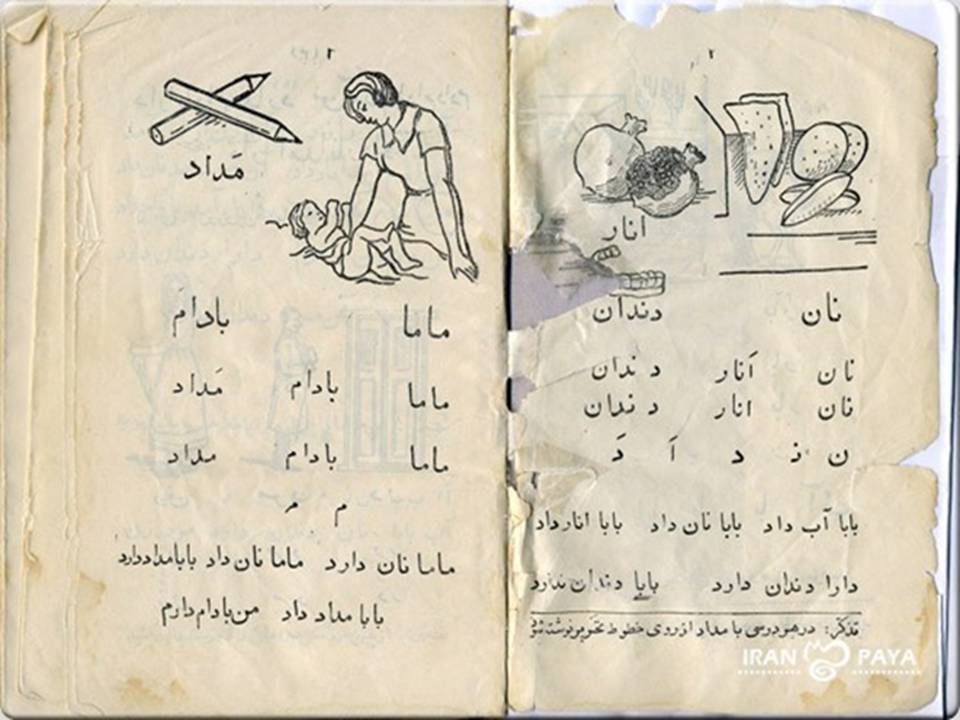 ۲
انار
نان دندان
نان اَنار دندان
نان انار دندان
ن نـ د اَ دَ
بابا آب داد بابا نان داد بابا انار داد
دارا دندان دارد بابا دندان ندارد
تذکّر: در هر درسی با مداد از روی خطوط
IRAN PAYA
مَداد
ماما بادام
ماما بادام مَداد
ماما بادام مداد
م مـ
ماما نان دارد ماما نان داد بابا مداد دارد
بابا مداد داد من بادام دارم